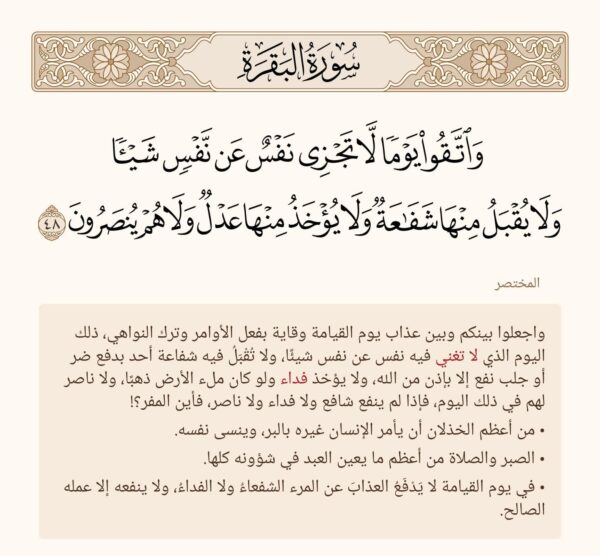 سُورَةُ البَقَرَةِ
وَٱتَّقُوا۟ يَوْمًا لَّا تَجْزِى نَفْسٌ عَن نَّفْسٍ شَيْـًٔا
وَلَا يُقْبَلُ مِنْهَا شَفَـٰعَةٌ وَلَا يُؤْخَذُ مِنْهَا عَدْلٌ وَلَا هُمْ يُنصَرُونَ ٤٨
المختصر
واجعلوا بينكم وبين عذاب يوم القيامة وقاية بفعل الأوامر وترك النواهي، ذلك
اليوم الذي لا تغني فيه نفس عن نفس شيئًا، ولا تُقْبَلُ فيه شفاعة أحد بدفع ضر
أو جلب نفع إلا بإذن من الله، ولا يؤخذ فداء ولو كان ملء الأرض ذهبًا، ولا ناصر
لهم في ذلك اليوم، فإذا لم ينفع شافع ولا فداء ولا ناصر، فأين المفر؟!
• من أعظم الخذلان أن يأمر الإنسان غيره بالبر، وينسى نفسه.
• الصبر والصلاة من أعظم ما يعين العبد في شؤونه كلها.
• في يوم القيامة لا يَدْفَعُ العذابَ عن المرء الشفعاءُ ولا الفداءُ، ولا ينفعه إلا عمله
الصالح.